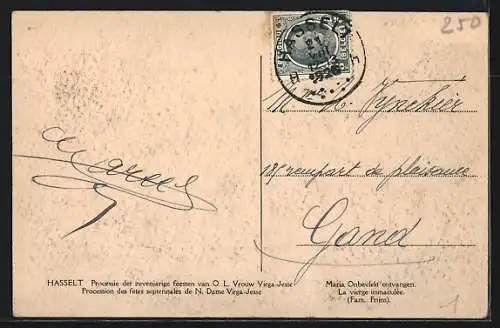 250
HASSELT
M. A. Vynckier
18, rempart de plaisance
Marcel
Gand
HASSELT Processie der zevenjarige feesten van O. L. Vrouw Virga-Jesse
Procession des fêtes septennales de N. Dame Virga-Jesse
Maria Onbevlekt ontvangen.
La vierge immaculée.
(Fam. Frijns).
1